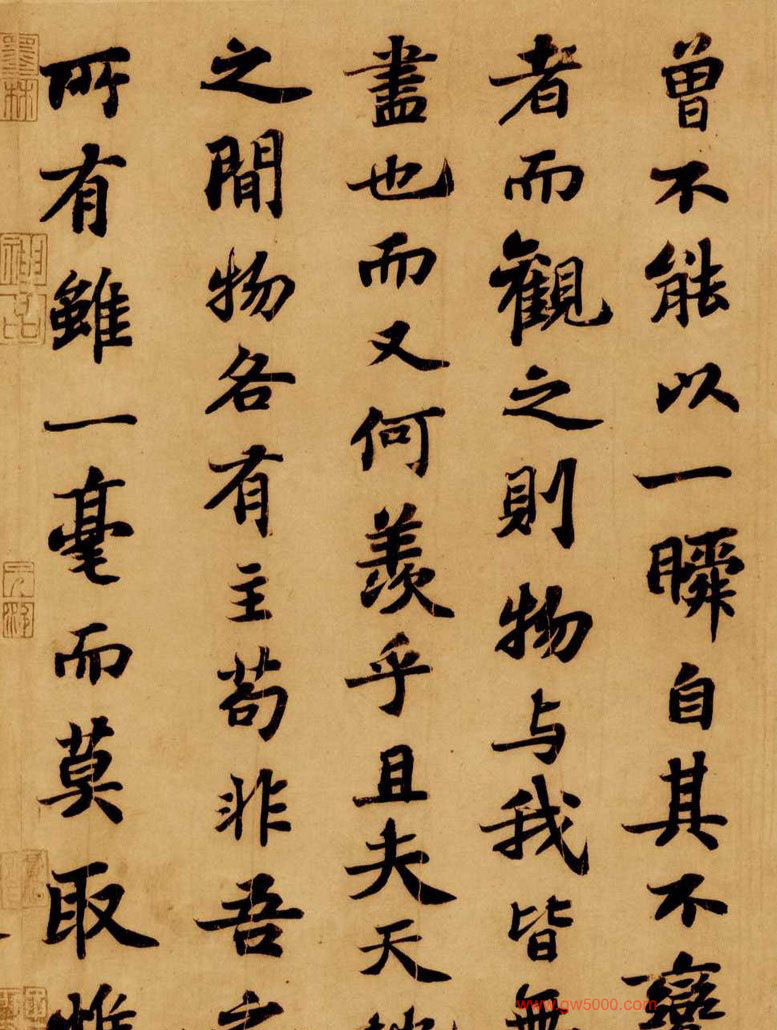 曾不能以一瞬自其不變
者而觀之則物与我皆無
盡也而又何羨乎且夫天地
之間物各有主苟非吾之
所有雖一毫而莫取惟
www.gw5000.com